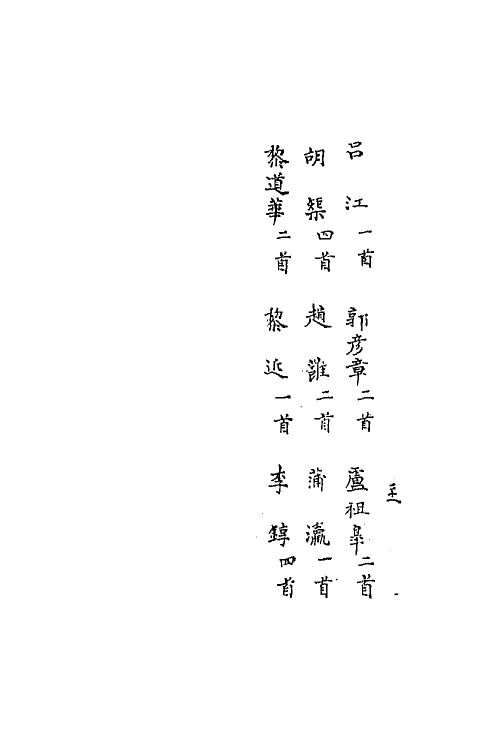 呂江一首　郭彦章二首　盧祖臯二首
胡榘四首　趙誰二首　蒲瀛一首
黎道華二首　黎近一首　李錞四首